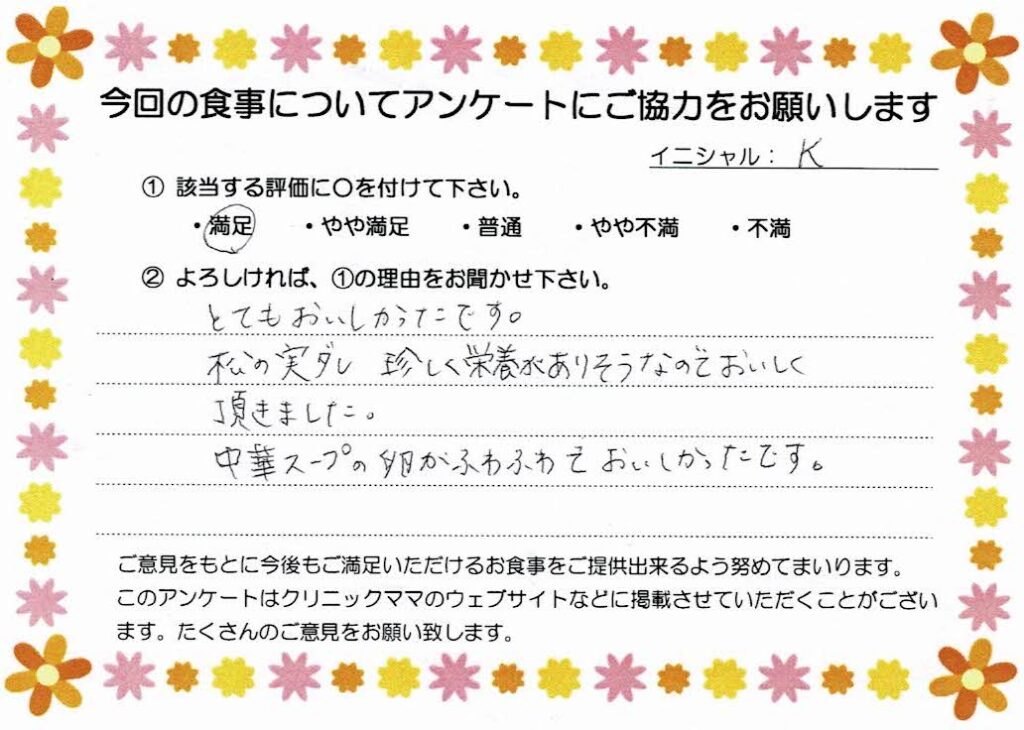 今回の食事についてアンケートにご協力をお願いします
イニシャル： K
① 該当する評価に〇を付けて下さい。
・満足 ・やや満足 ・普通 ・やや不満 ・不満
② よろしければ、①の理由をお聞かせ下さい。
とてもおいしかったです。
松の実ダレ 珍しく栄養がありそうなのでおいしく
頂きました。
中華スープの卵がふわふわで おいしかったです。
ご意見をもとに今後もご満足いただけるお食事をご提供出来るよう努めてまいります。
このアンケートはクリニックママのウェブサイトなどに掲載させていただくことがござい
ます。たくさんのご意見をお願い致します。